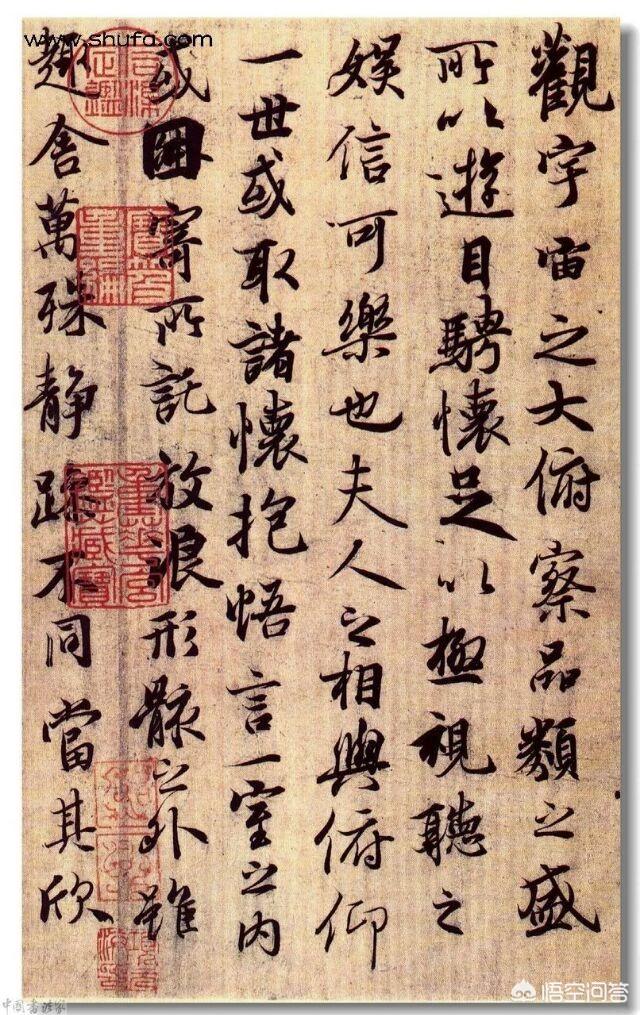 觀宇宙之大俯察品類之盛
所以遊目騁懷足以極視聽之
娛信可樂也夫人之相與俯仰
一世或取諸懷抱悟言一室之內
或因寄所託放浪形骸之外雖
趣舍萬殊静躁不同當其欣
www.shufa.com
中國書法家
悟空问答